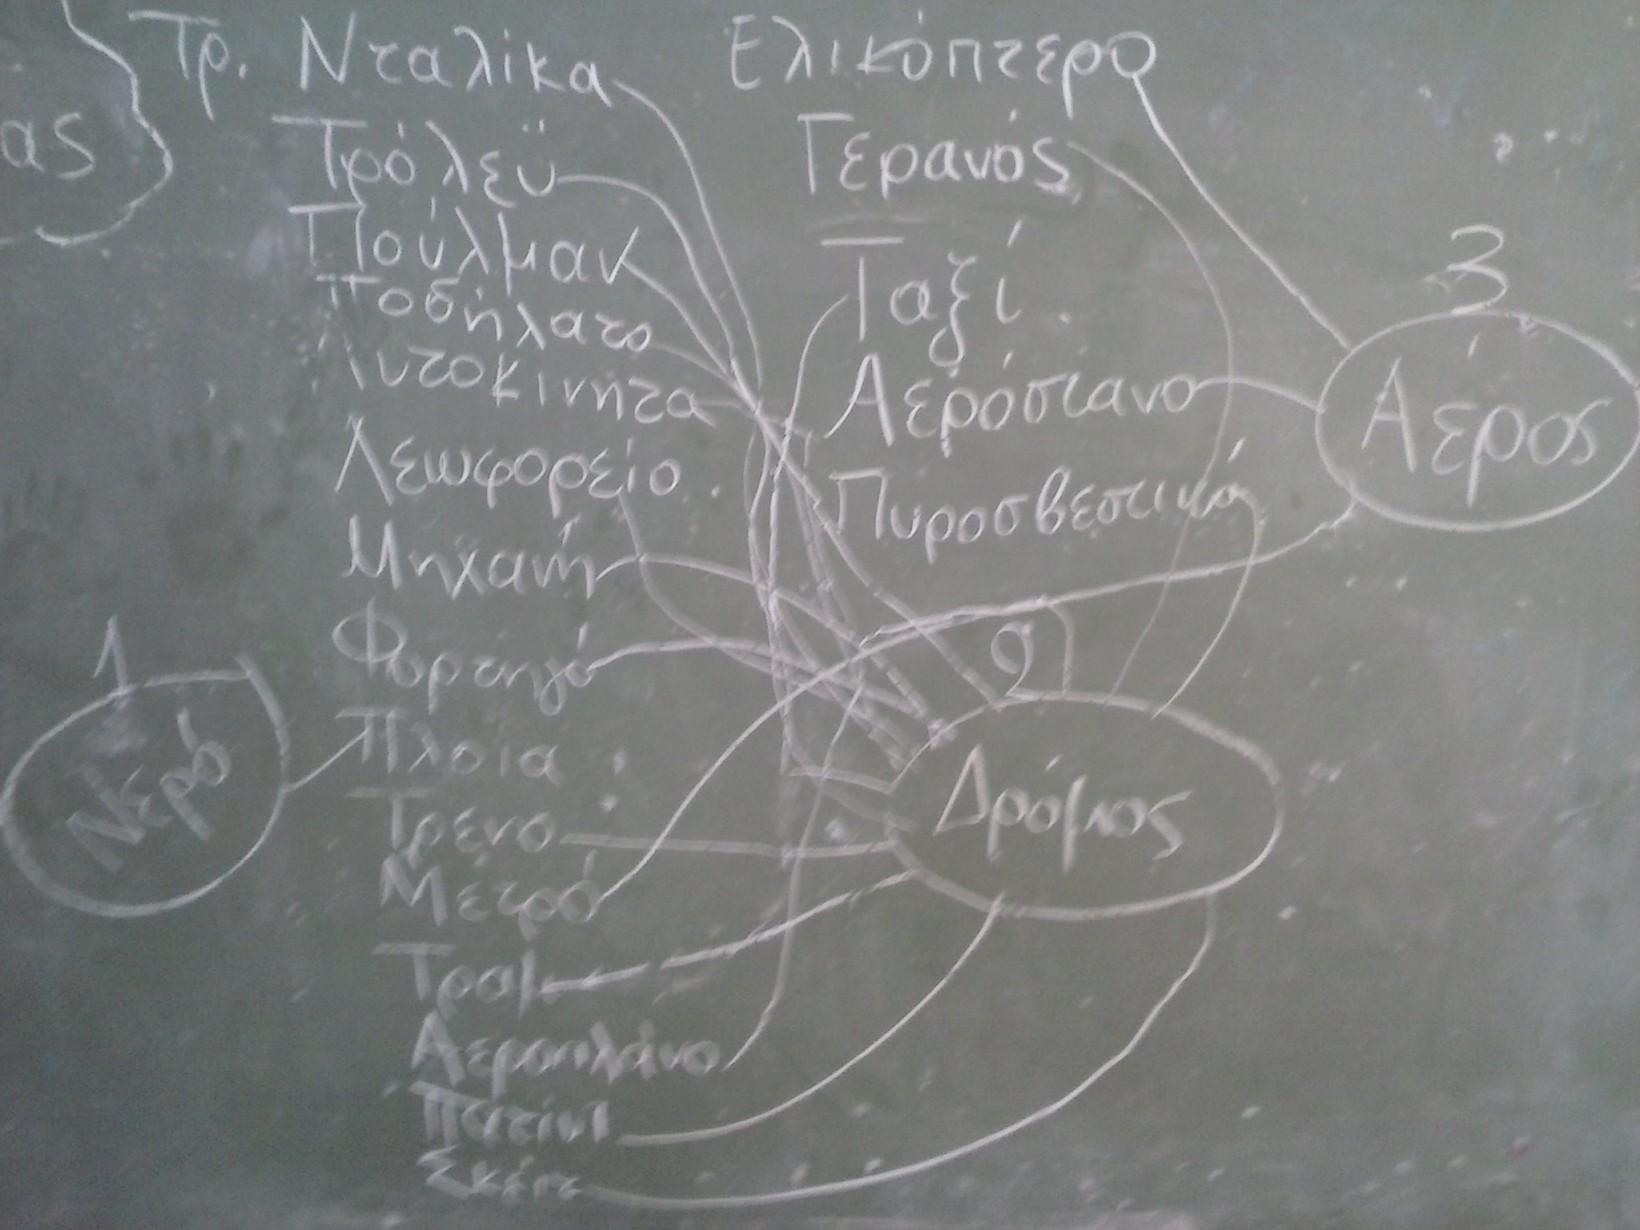 ας
Τρ. Νταλίκα
Τρόλεϋ
Πούλμαν
Ποδήλατο
Αυτοκινητα
Λεωφορείο
Μηχανή
Φορτηγό
Πλοία
Τρένο
Μετρό
Τραμ
Αεροπλάνο
Πατίνι
Σκέιτ
Ελικόπτερο
Γερανός
Ταξί.
Αερόστανο
Πυροσβεστικό
1
Νερό
2
Δρόμος
3
Αέρος